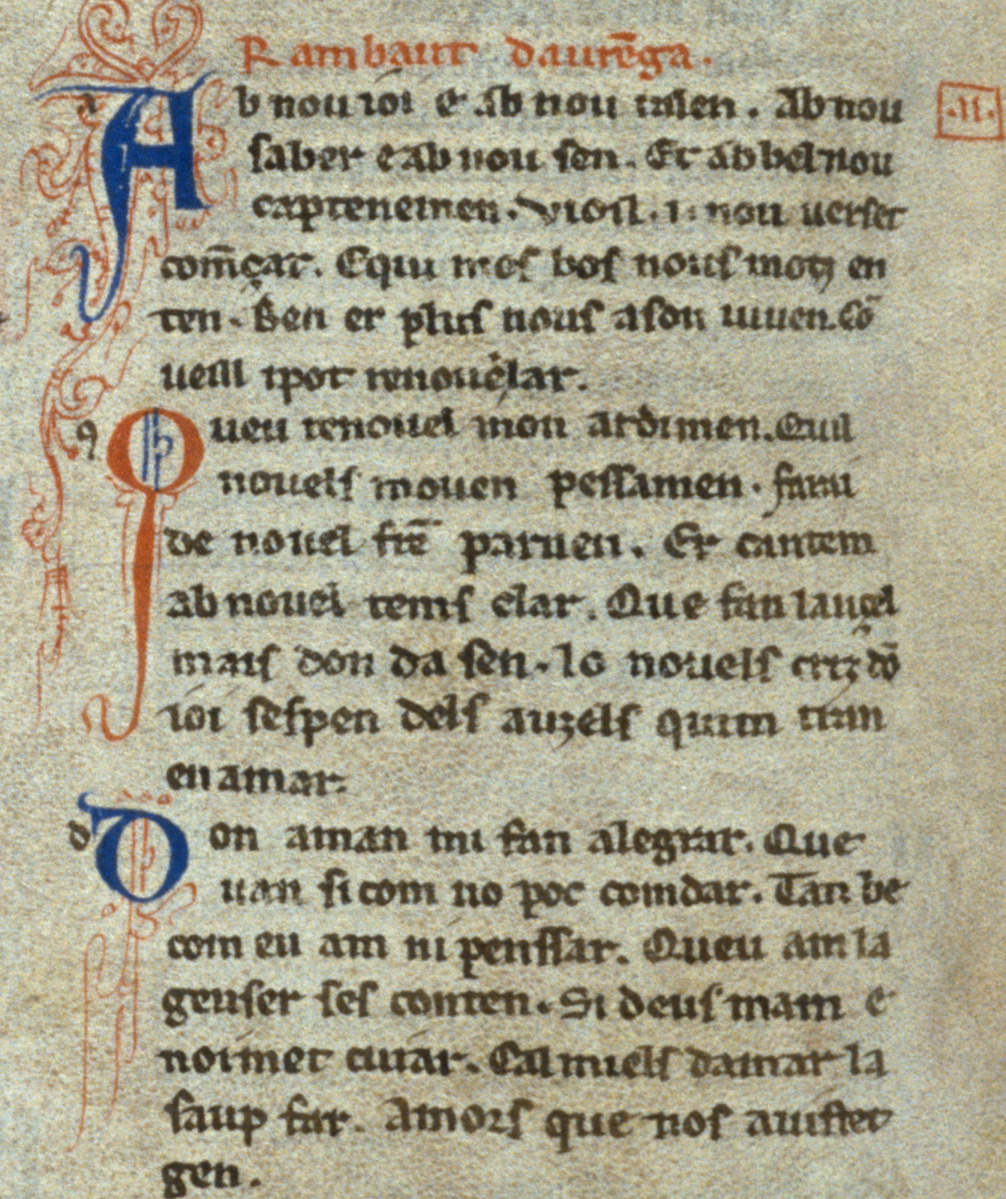 Rambaut daurēga.
Ab nou ioi e ab nou talen. Ab nou
.II.
saber e ab nou sen. Et ab bel nou
captenemen. Vuoil .i. nou uerset
com̄çar. Equi mos bos nous motz en
ten. Ben er plus nous a son iuuen. Cō
ueill ipot renouelar.
q
Queu renouel mon ardimen. Quil
nouels mou en pessamen. farai
de nouel frē paruen. Er cantem
ab nouel tems clar. Que fan lauçel
mais don da sen. lo nouels critz dō
ioi sespen dels auzels quim tran
en amar.
d
Don aman mi fan alegrar. Que
uan si com no poc comdar. Tan be
com eu am ni penssar. Queu am la
genser ses conten. Si deus mam e
noi met cuiar. Cal miels damar la
saup far. Amors que nos aiustet
gen.